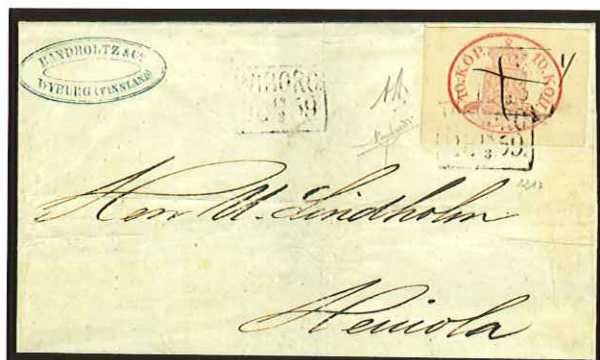 BANDHOLTZ & Co.
WYBURG (FINNLAND)
WIBORG
59
10. KOP. 10. КОП.
59.
Herr W. Lindholm
Heinola